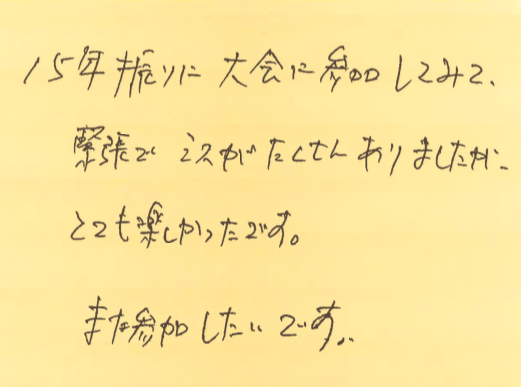 15年振りに大会に参加してみて、
緊張でミスがたくさんありましたが、
とても楽しかったです。
また参加したいです。